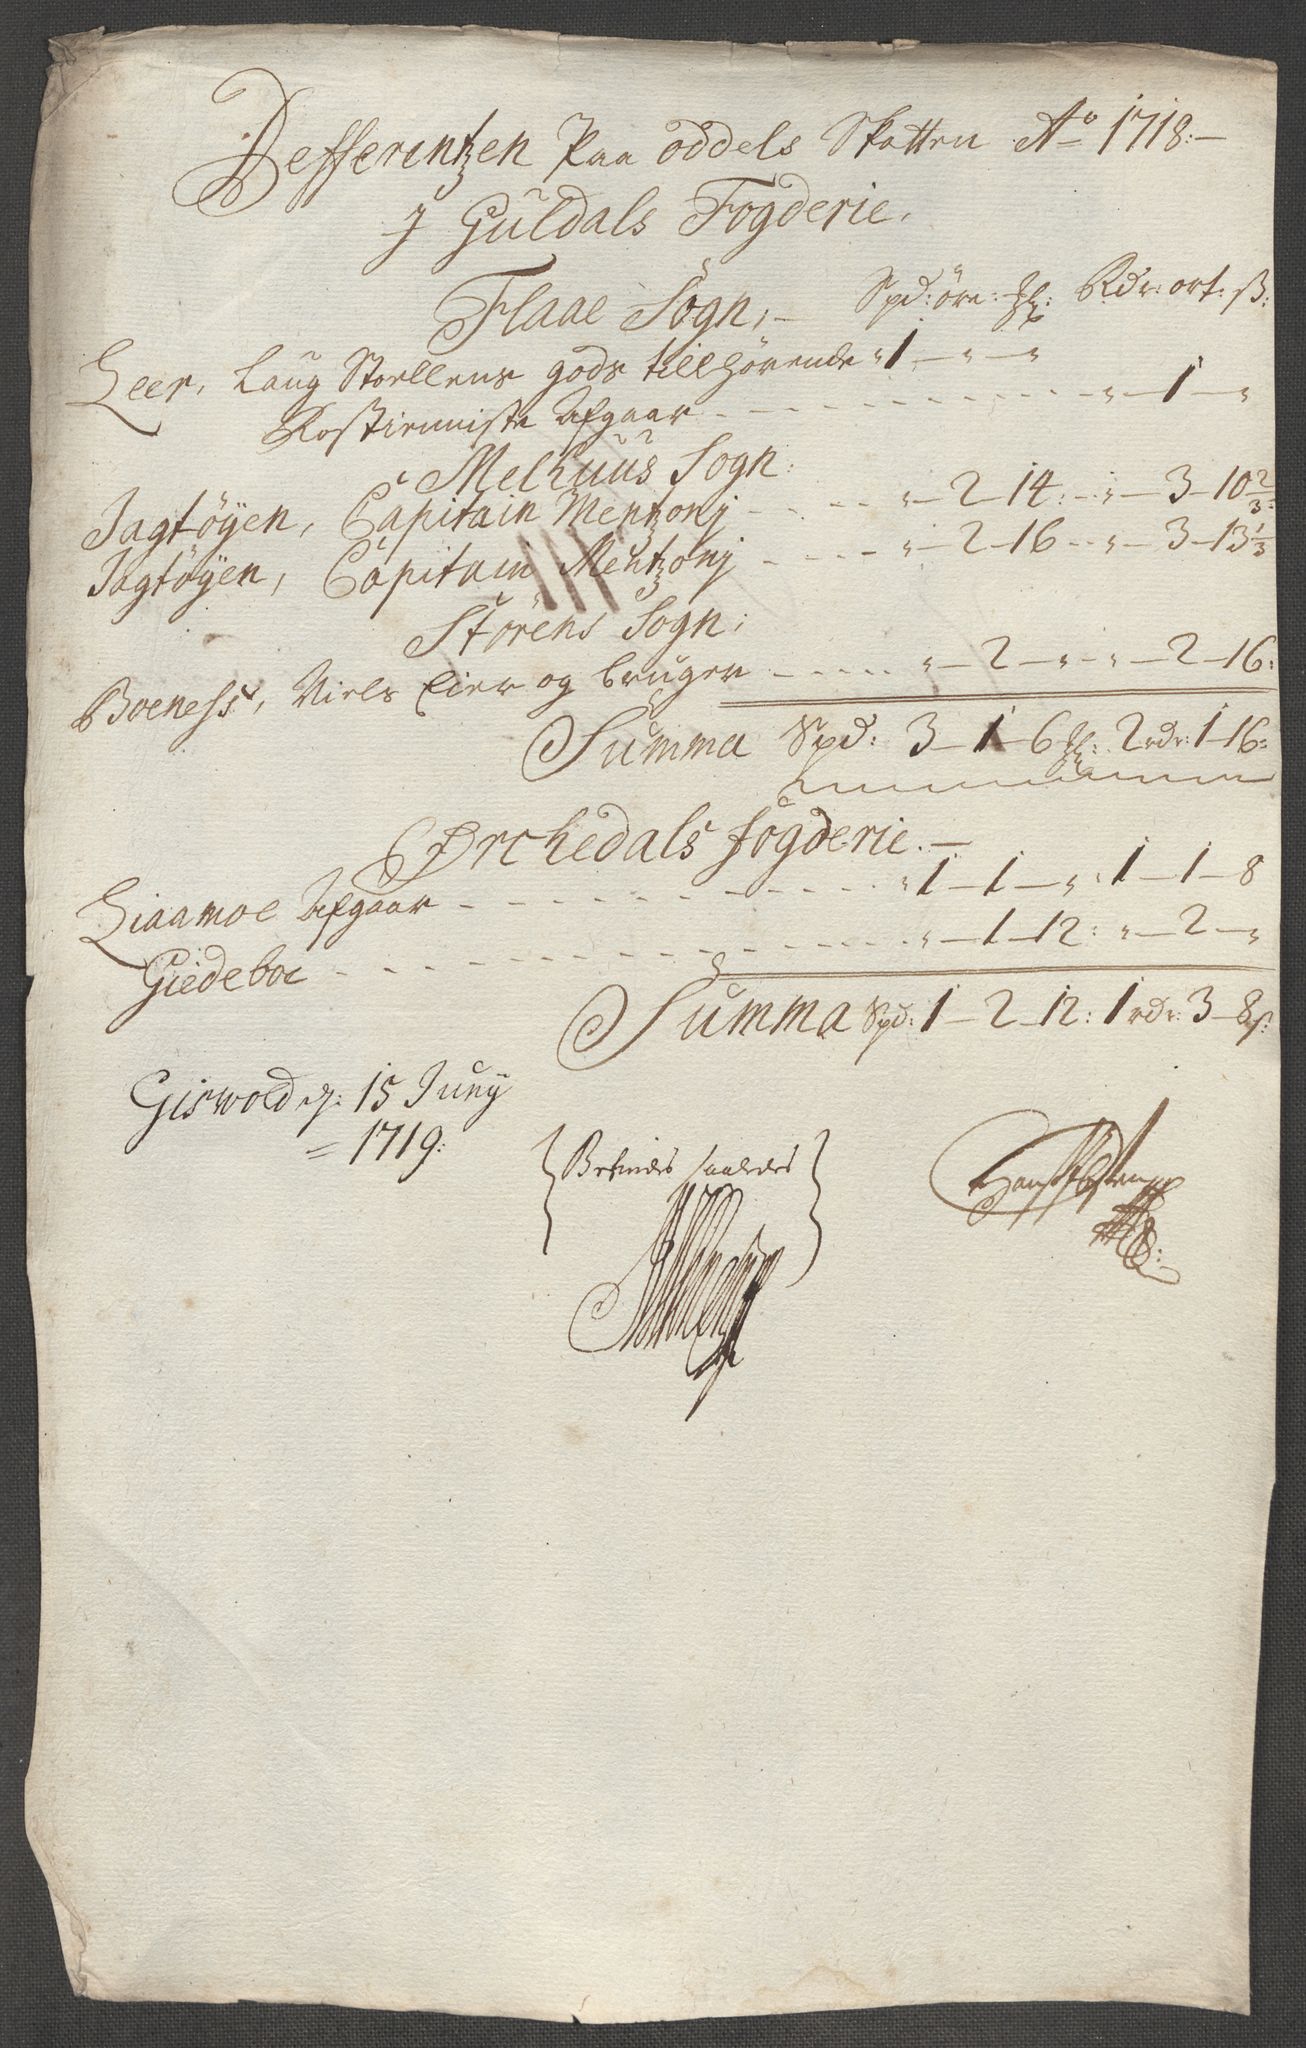 Defferentzen Paa oddels Skatten Ao 1718:
J Guldals Fogderie.
Flaae Sogn, Spd: öre: Rdr: ort: ß:
Leer, Laug Stoellens gods tillhörende " 1 — " — "
Afgaar " — 1 — "
Melhuus Sogn:
Jagtöyen, Capitain Mentzonj " — 2 — 14: " — 3 — 10 2/3:
Jagtöyen, Capitain Mentzonj " — 2 — 16 " — 3 — 13 1/3
Störens Sogn:
Boeness, Niels Eier og bruger " — 2 — " " — 2 — 16:
Summa Spd: 3 — 1 — 6 2 rdr: 1 — 16:
Orchedals fogderie.
Liaamoe Afgaar " 1 — 1 — " 1 — 1 — 8
Giedeboe " — 1 — 12: " — 2 — "
Summa Spd: 1 — 2 — 12: 1 rdr: 3 — 8 s:
Giswold d: 15 Juny
1719:
Befindes saaledes